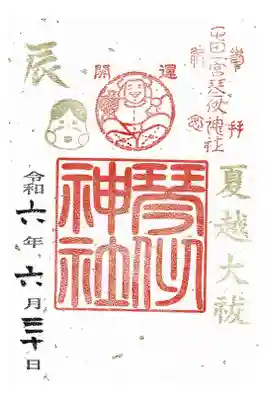 奉拝
屯田一宮琴似神社
開運
辰
夏越大祓
琴似神社
令和六年六月三十日